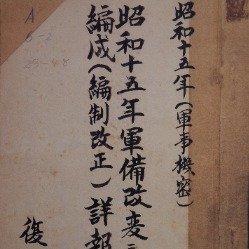 昭和十五年(軍事機密)
昭和十五年軍備改変ニ
編成(編制改正)詳報
復
A
5-2